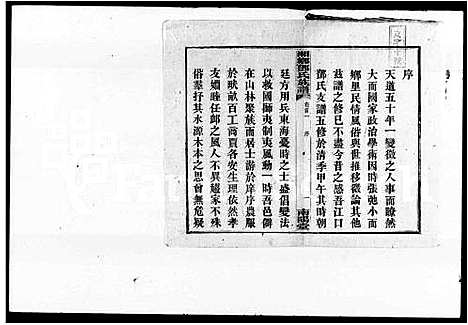 序
天道五十年一變徵之人事而瞭然
大而國家政治學術因時張弛小而
鄉里民情風俗與世推移微論其他
茲譜之修已不盡今昔之感吾江口
鄧氏支譜五修於清季甲午其時朝
湘鄉鄧氏族譜 卷首 序 一 南陽堂
廷方用兵東海憂時之士盛倡變法
以救國獅夷制夷風動一時吾邑僻
在山林聚族而居士游於庠序農服
於畎畝百工商賈各安生理依然孝
友媚睦任卹之風人不異趨家不殊
俗羣抒其水源木本之思曾無危疑